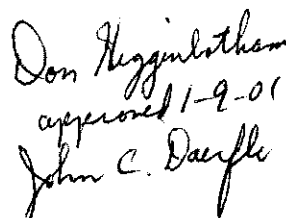 Don Higginbotham
approved 1-9-01
John C. Doerfle